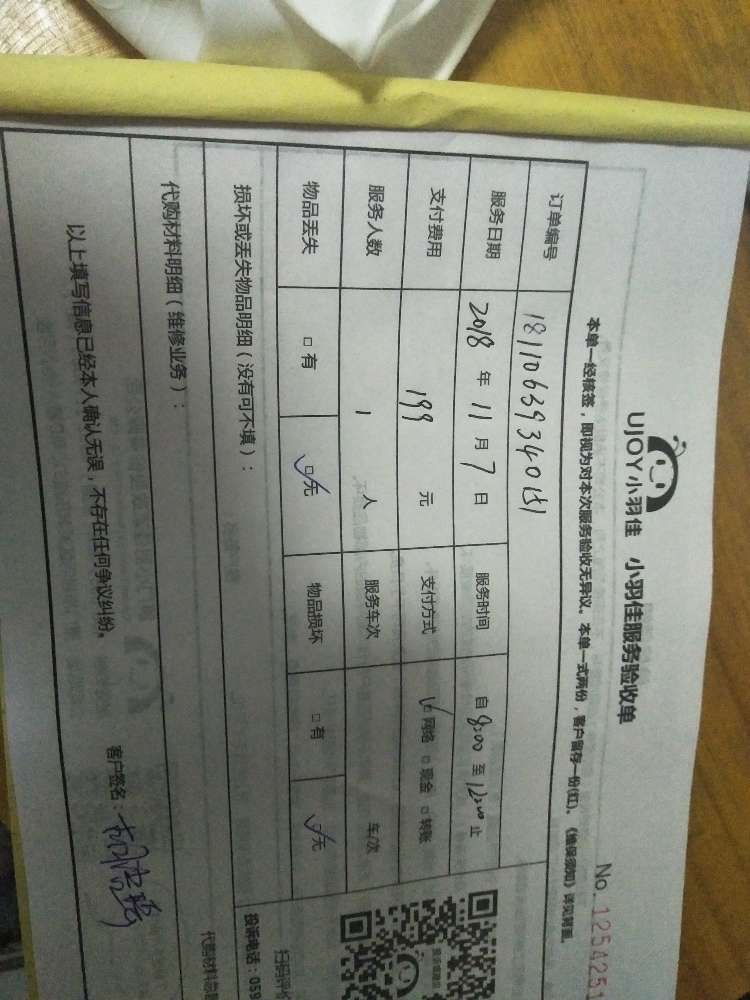 UJOY小羽佳 小羽佳服务验收单
No. 1254251
本单一经核签，即视为对本次服务验收无异议，本单一式两份，客户留存一份(红)。《维保须知》详见背面。
订单编号 18110639340151
服务日期 2018 年 11 月 7 日 服务时间 自 8:00 至 12:00 止
支付费用 199 元 支付方式 网络 现金 转账
服务人数 1 人 服务车次 车/次
物品丢失 有 无 物品损坏 有 无
损坏或丢失物品明细（没有可不填）：
代购材料明细（维修业务）：
扫码评价
投诉电话：059
代购材料总
以上填写信息已经本人确认无误，不存在任何争议纠纷。
客户签名：